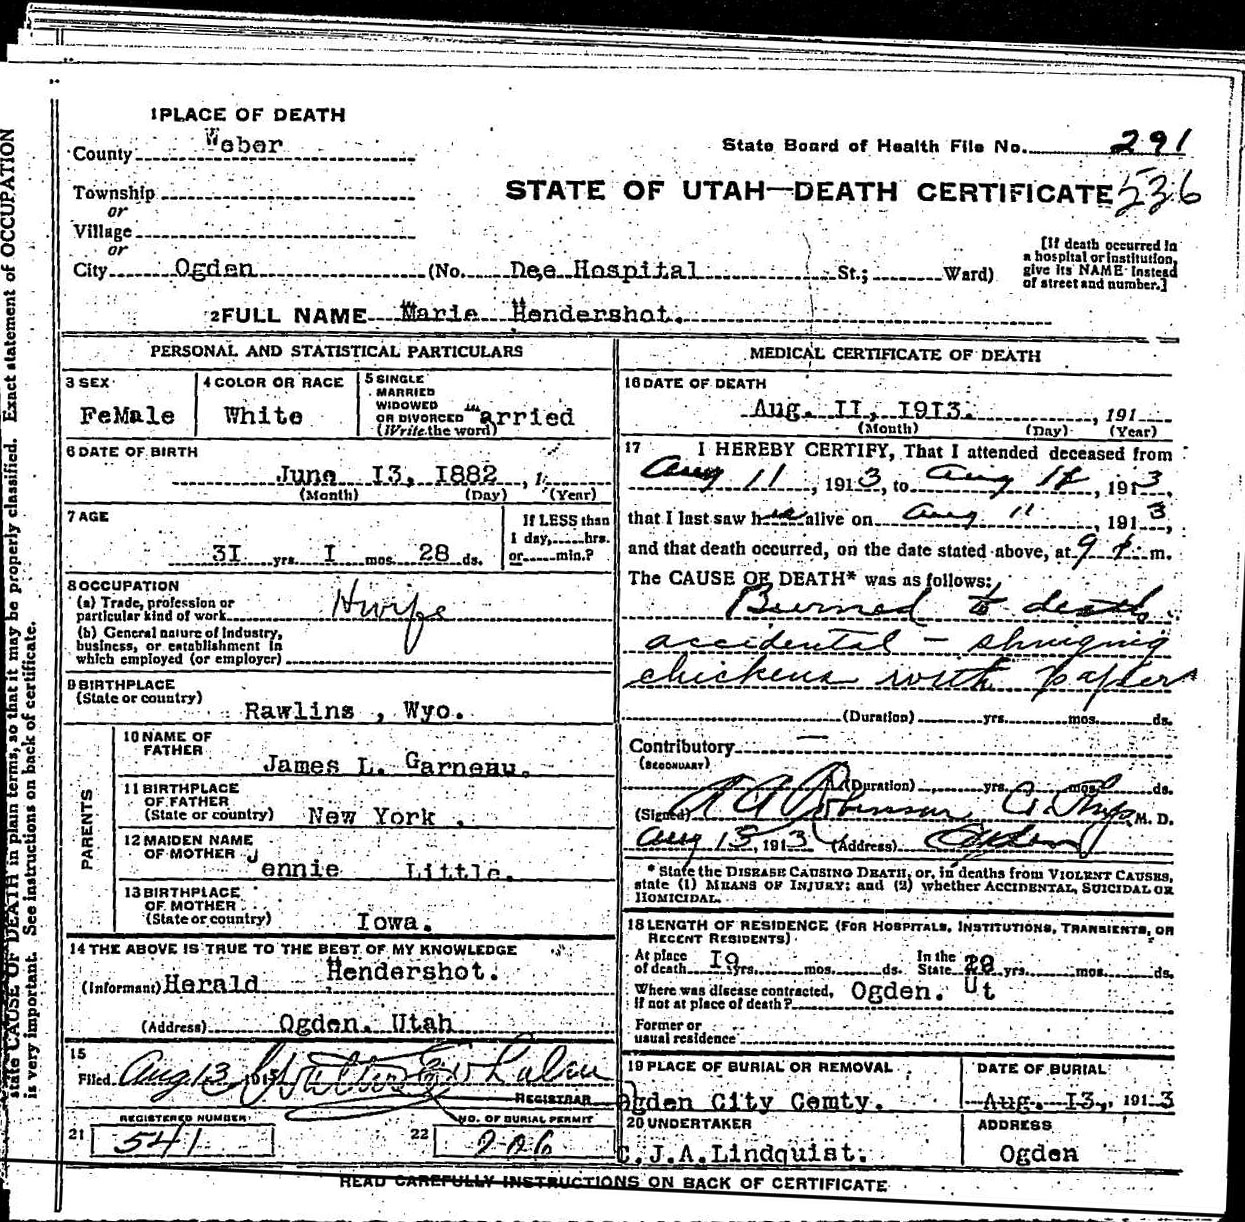 1 PLACE OF DEATH
County Weber
State Board of Health File No. 291
Township
STATE OF UTAH—DEATH CERTIFICATE 536
or
Village
or
City Ogden (No. Dee Hospital St.; Ward)
[If death occurred in
a hospital or institution,
give its NAME instead
of street and number.]
2 FULL NAME Marie Hendershot.
PERSONAL AND STATISTICAL PARTICULARS
3 SEX
FeMale
4 COLOR OR RACE
White
5 SINGLE
MARRIED
WIDOWED
OR DIVORCED
(Write the word)
Married
6 DATE OF BIRTH
June I3, I882 , 1
(Month) (Day) (Year)
7 AGE
3I yrs. I mos. 28 ds.
If LESS than
1 day, hrs.
or min.?
8 OCCUPATION
(a) Trade, profession or
particular kind of work Hwife
(b) General nature of Industry,
business, or establishment in
which employed (or employer)
9 BIRTHPLACE
(State or country)
Rawlins , Wyo.
PARENTS
10 NAME OF
FATHER
James L. Garneau.
11 BIRTHPLACE
OF FATHER
(State or country) New York .
12 MAIDEN NAME
OF MOTHER
Jennie Little.
13 BIRTHPLACE
OF MOTHER
(State or country) Iowa.
14 THE ABOVE IS TRUE TO THE BEST OF MY KNOWLEDGE
(Informant) Herald Hendershot.
(Address) Ogden. Utah
15
Filed Aug 13 1913
REGISTRAR
REGISTERED NUMBER
21 541
NO. OF BURIAL PERMIT
22 206
MEDICAL CERTIFICATE OF DEATH
16 DATE OF DEATH
Aug. II, I9I3. , 191
(Month) (Day) (Year)
17 I HEREBY CERTIFY, That I attended deceased from
Aug 11 , 1913, to Aug , 1913,
that I last saw her alive on Aug 11 , 1913,
and that death occurred, on the date stated above, at 9 m.
The CAUSE OF DEATH* was as follows:
Burned to death
accidental —
chickens with paper
(Duration) yrs. mos. ds.
Contributory —
(SECONDARY)
(Duration) yrs. mos. ds.
(Signed) M. D.
Aug 13, 1913 (Address) Ogden
* State the DISEASE CAUSING DEATH, or, in deaths from VIOLENT CAUSES,
state (1) MEANS OF INJURY; and (2) whether ACCIDENTAL, SUICIDAL OR
HOMICIDAL.
18 LENGTH OF RESIDENCE (FOR HOSPITALS, INSTITUTIONS, TRANSIENTS, OR
RECENT RESIDENTS)
At place
of death I9 yrs. mos. ds.
In the
State yrs. mos. ds.
Where was disease contracted,
if not at place of death? Ogden. Ut
Former or
usual residence
19 PLACE OF BURIAL OR REMOVAL
Ogden City Cemty.
DATE OF BURIAL
Aug. I3, 1913
20 UNDERTAKER
C.J.A.Lindquist.
ADDRESS
Ogden
READ CAREFULLY INSTRUCTIONS ON BACK OF CERTIFICATE
state CAUSE OF DEATH in plain terms, so that it may be properly classified. Exact statement of OCCUPATION
is very important. See instructions on back of certificate.